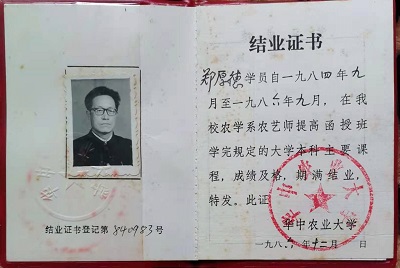 结业证书登记第840983号
结业证书
郑厚德学员自一九八四年九
月至一九八六年九月，在我
校农学系农艺师提高函授班
学完规定的大学本科主要课
程，成绩及格，期满结业，
特发。此证
华中农业大学
一九八六年十二月 日
华中农业大学